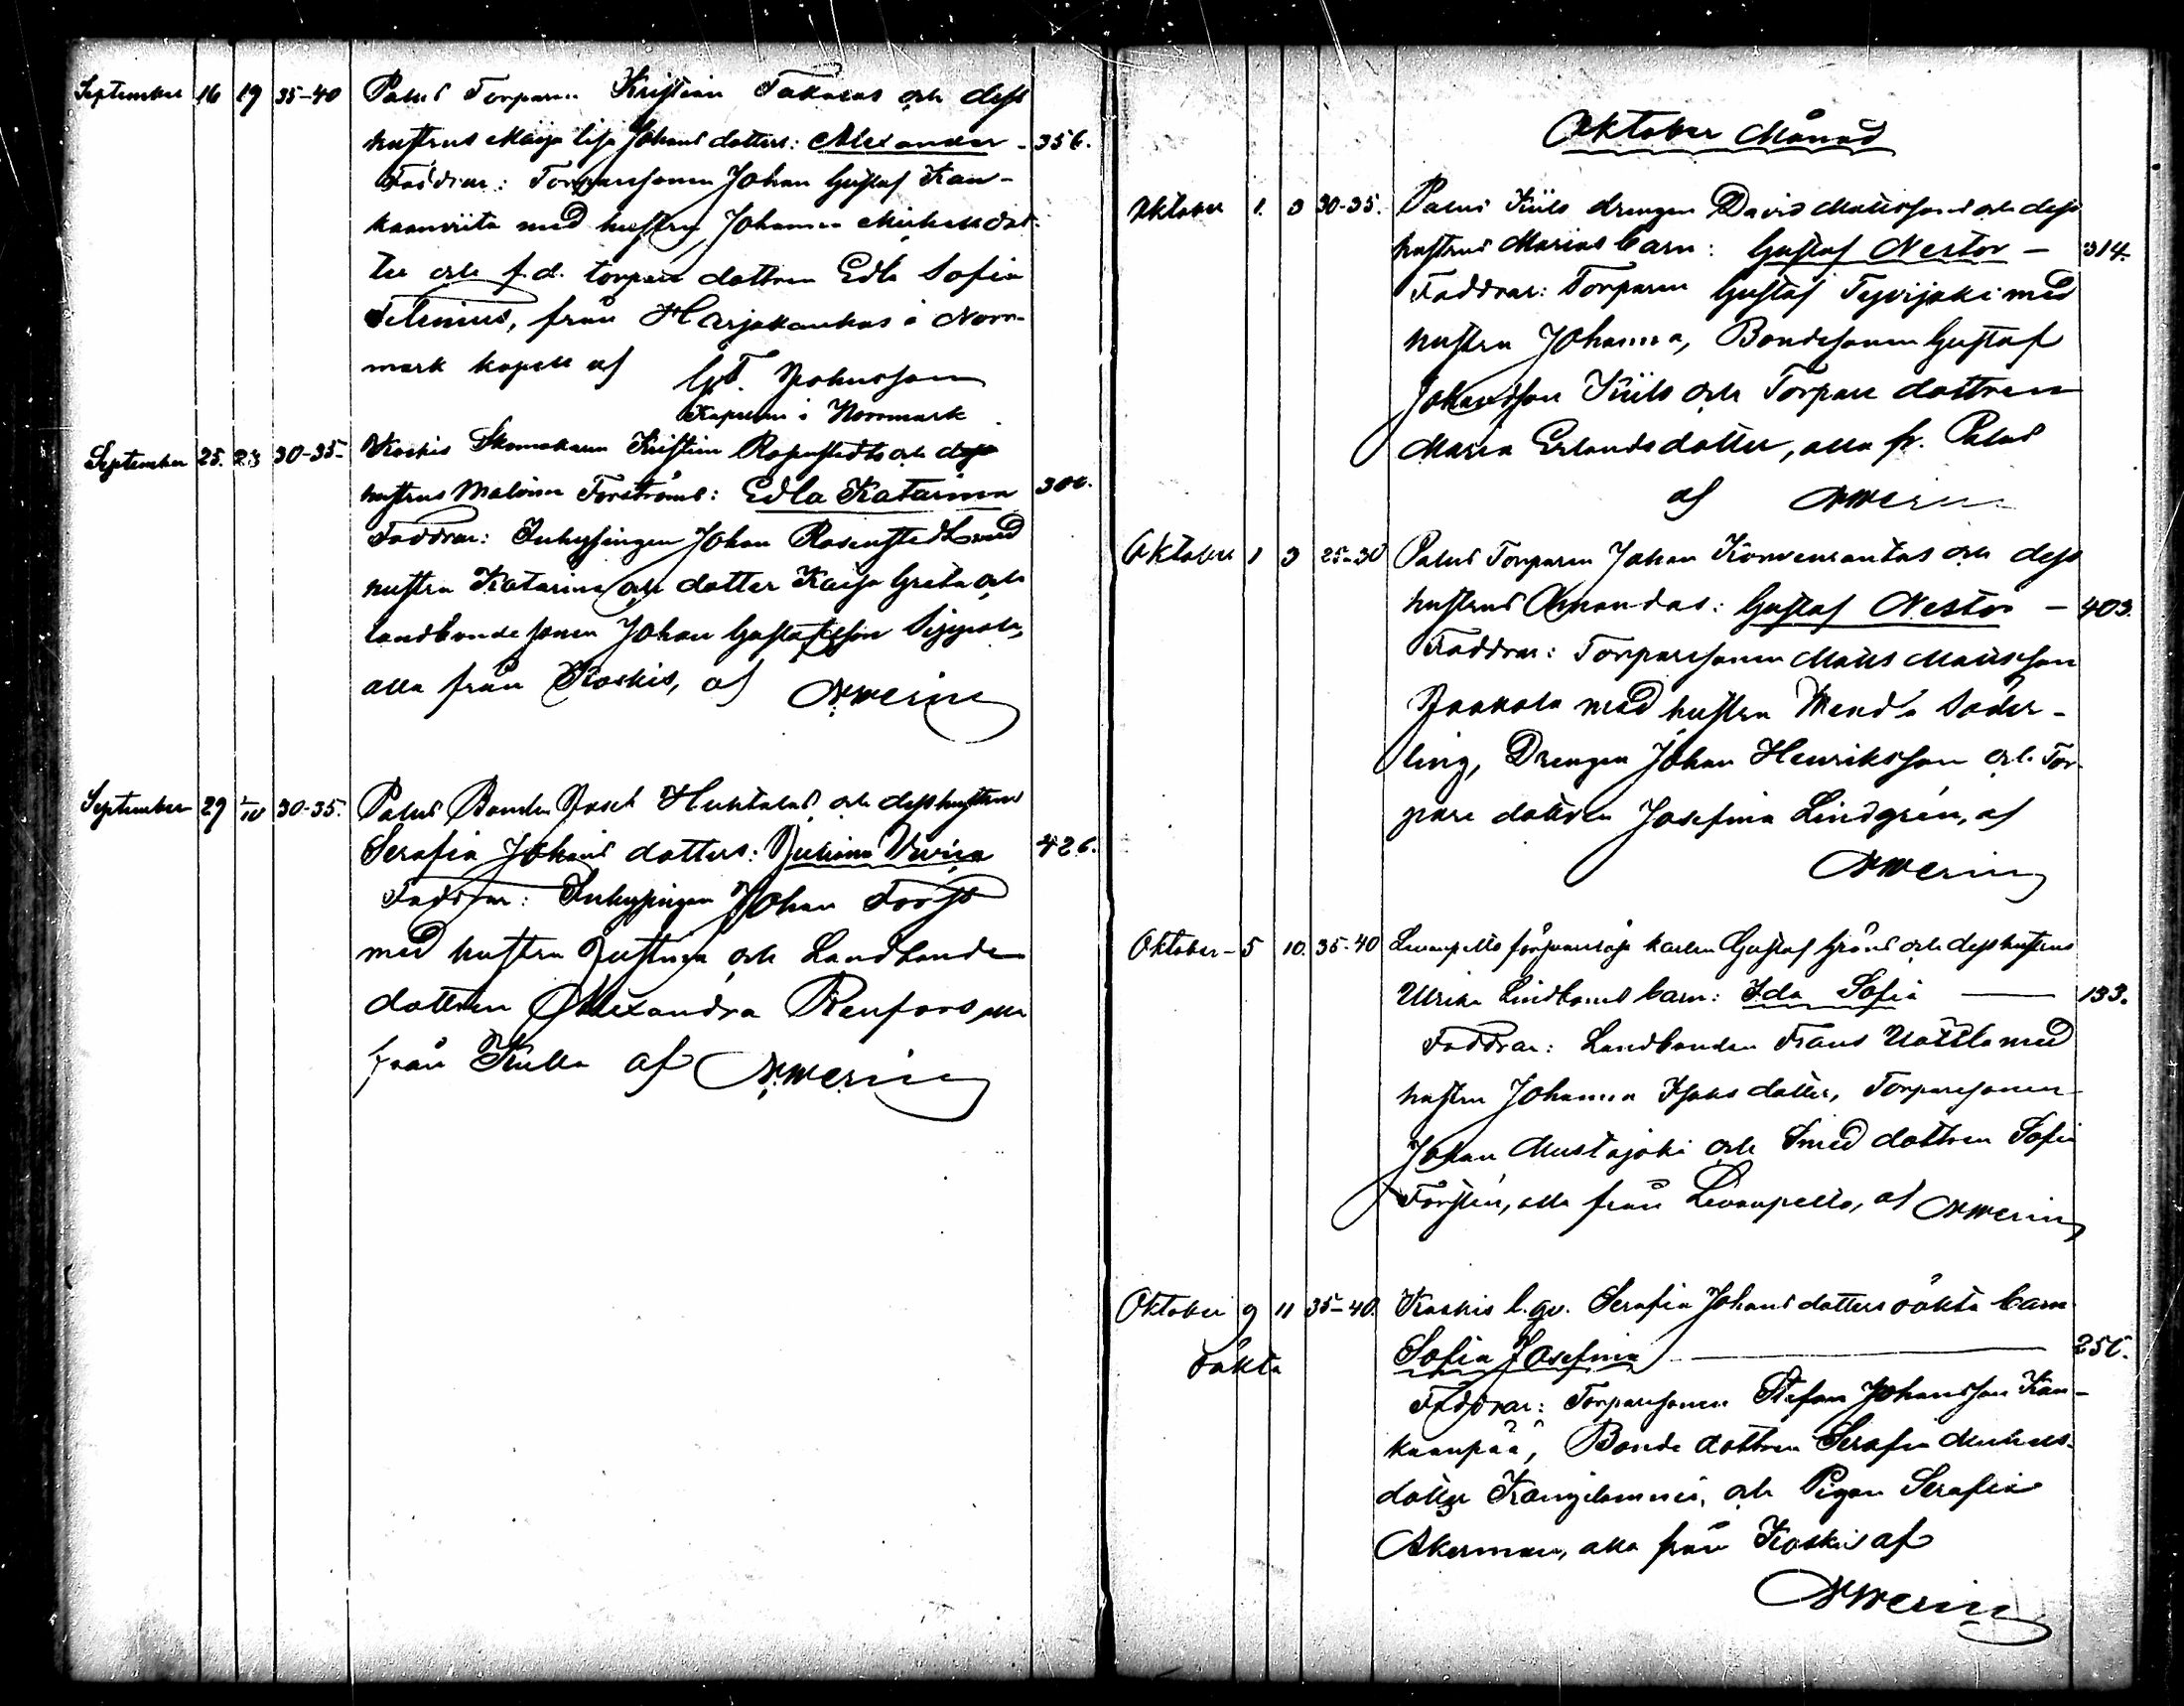 September 16 19 35-40 Palus Torparen Kristian Takalas och dess
hustrus Maija Lisa Johansdotters: Alexander - 356.
Faddrar: Torparesonen Johan Gustaf Kan-
kaanriita med hustru Johanna Mickelsdot-
ter och f.d. torpare dottren Edla Sofia
från Harjakankas i Norr-
mark kapell af G.T. Johnsson
Kaplan i Norrmark
September 25. 28 30-35- Koskis Skomakaren Kristian Rosenstedts och dess
hustrus Malvina Forströms: Edla Katarina 300.
Faddrar: Inhysingen Johan Rosenstedt med
hustru Katarina och dotter Kaisa Greta och
landbonde sonen Johan Gustafsson
alla från Koskis, af
September 29 1/10 30-35. Palus Bonden Josef Huhtalas och dess hustrus
Serafia Johans dotters: Juliana 426.
Faddrar: Inhysingen Johan Forss
med hustru Justina och Landbonde
dottren Alexandra Renfors, alla
från Kulla af
Oktober Månad
Oktober 1. 3 30-35. Palus drengen David Mattssons och dess
hustrus Marias barn: Gustaf Nestor - 314.
Faddrar: Torparen Gustaf med
hustru Johanna, Bondesonen Gustaf
Johansson och Torpare dottren
Maria Erlandsdotter, alla fr. Palus
af
Oktober 1 3 25-30 Palus Torparen Johan och dess
hustrus Amandas: Gustaf Nestor - 403.
Faddrar: Torparesonen Matts Mattsson
Jaakola med hustru Wenda Söder-
ling, Drengen Johan Henriksson och Tor-
pare dottren Josefina Lindgrén, af
Oktober - 5 10. 35-40 Levanpelto försvarslöse karlen Gustaf Gröns och dess hustrus
Ulrika Lindboms barn: Ida Sofia - 133.
Faddrar: Landbonden Frans Uotila med
hustru Johanna Isaks dotter, Torparesonen
Johan Mustajoki och Smed dottren Sofia
Forstén, alla från Levanpelto, af
Oktober 9 11 35-40. Koskis l. qv. Serafia Johans dotters oäkta barn
oäkta Sofia Josefina - 250.
Faddrar: Torparesonen Stefan Johansson Kan-
kaanpää, Bonde dottren Serafia Mickels-
dotter och Pigan Serafia
Åkerman, alla från Koskis af